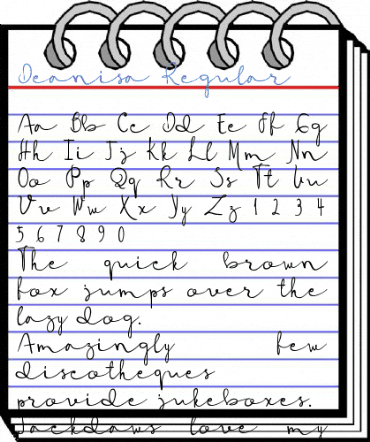 Deanisa Regular
Aa Bb Cc Dd Ee Ff Gg
Hh Ii Jj Kk Ll Mm Nn
Oo Pp Qq Rr Ss Tt Uu
Vv Ww Xx Yy Zz 1 2 3 4
5 6 7 8 9 0
The quick brown
fox jumps over the
lazy dog.
Amazingly few
discotheques
provide jukeboxes.
Jackdaws love my